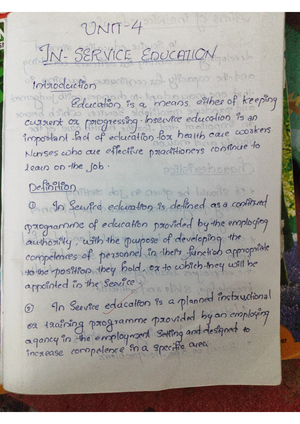 UNIT-4
IN-SERVICE EDUCATION
Introduction
Education is a means either of keeping
current or progressing. Inservice education is an
important part of education for health care workers
Nurses who are effective practitioners continue to
learn on the job.
Definition
① In Service education is defined as a continued
programme of education provided by the employing
authority, with the purpose of developing the
competences of personnel in their function appropiate
to the position they hold, or to which they will be
appointed in the service.
② In Service education is a planned instructional
or training programme provided by an employing
agency in the employment setting and designed to
increase competence in a specific area